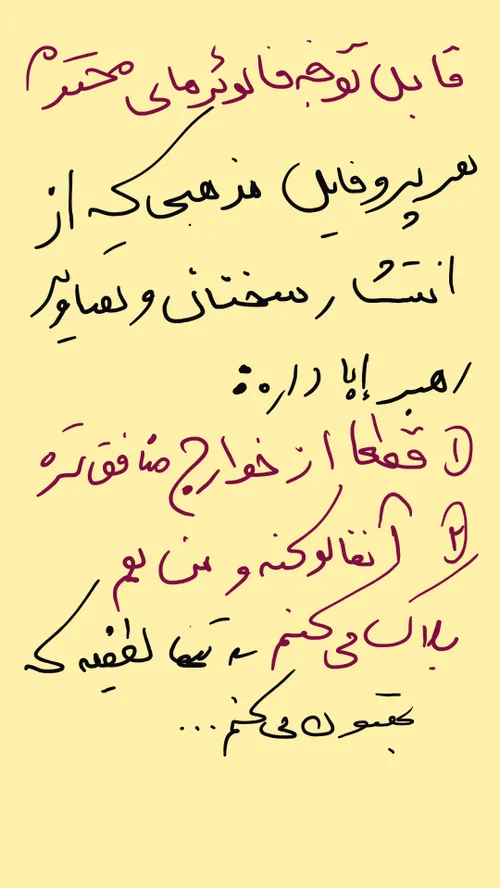 قابل توجه فالوئرهای محترم
هر پروفایل مذهبی که از
انتشار سخنان و تصاویر
رهبر إبا داره:
۱) قطعا از خوارج منافق تره
۲) آنفالو کنه و من هم
بلاک می کنم تنها لطفیه که
بهتون می کنم...